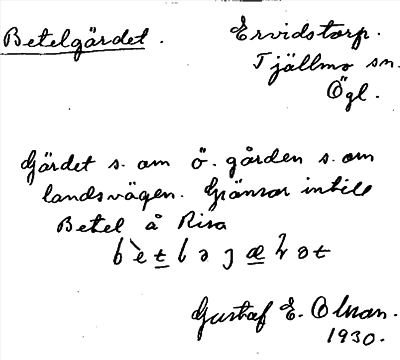 Betelgärdet.
Ervidstorp.
Tjällmo sn.
Ögl.
Gärdet s. om ö. gården s. om
landsvägen. Gränsar intill
Betel å Risa
Gustaf E. Olson.
1930.